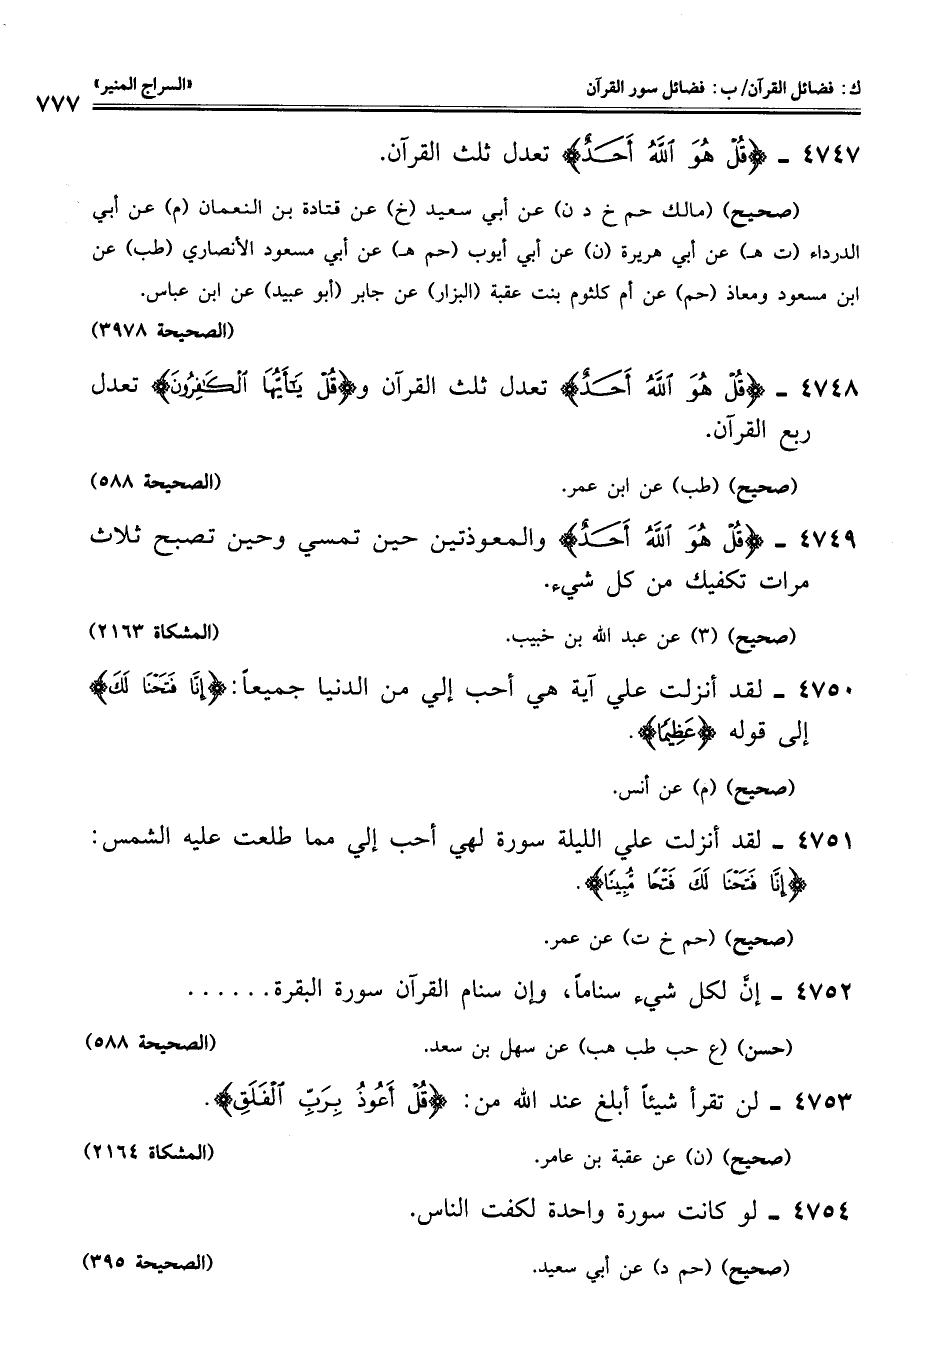 ك: فضائل القرآن/ ب: فضائل سور القرآن
«السراج المنير»
٧٧٧
٤٧٤٧ ـ ﴿قُلْ هُوَ ٱللَّهُ أَحَدٌ﴾ تعدل ثلث القرآن.
(صحيح) (مالك حم خ د ن) عن أبي سعيد (خ) عن قتادة بن النعمان (م) عن أبي
الدرداء (ت هـ) عن أبي هريرة (ن) عن أبي أيوب (حم هـ) عن أبي مسعود الأنصاري (طب) عن
ابن مسعود ومعاذ (حم) عن أم كلثوم بنت عقبة (البزار) عن جابر (أبو عبيد) عن ابن عباس.
(الصحيحة ٣٩٧٨)
٤٧٤٨ ـ ﴿قُلْ هُوَ ٱللَّهُ أَحَدٌ﴾ تعدل ثلث القرآن و﴿قُلْ يَٰٓأَيُّهَا ٱلْكَٰفِرُونَ﴾ تعدل
ربع القرآن.
(صحيح) (طب) عن ابن عمر. (الصحيحة ٥٨٨)
٤٧٤٩ ـ ﴿قُلْ هُوَ ٱللَّهُ أَحَدٌ﴾ والمعوذتين حين تمسي وحين تصبح ثلاث
مرات تكفيك من كل شيء.
(صحيح) (٣) عن عبد الله بن خبيب. (المشكاة ٢١٦٣)
٤٧٥٠ ـ لقد أنزلت علي آية هي أحب إلي من الدنيا جميعاً: ﴿إِنَّا فَتَحْنَا لَكَ﴾
إلى قوله ﴿عَظِيمًا﴾.
(صحيح) (م) عن أنس.
٤٧٥١ ـ لقد أنزلت علي الليلة سورة لهي أحب إلي مما طلعت عليه الشمس:
﴿إِنَّا فَتَحْنَا لَكَ فَتْحًا مُّبِينًا﴾.
(صحيح) (حم خ ت) عن عمر.
٤٧٥٢ ـ إنَّ لكل شيء سناماً، وإن سنام القرآن سورة البقرة......
(حسن) (ع حب طب هب) عن سهل بن سعد. (الصحيحة ٥٨٨)
٤٧٥٣ ـ لن تقرأ شيئاً أبلغ عند الله من: ﴿قُلْ أَعُوذُ بِرَبِّ ٱلْفَلَقِ﴾.
(صحيح) (ن) عن عقبة بن عامر. (المشكاة ٢١٦٤)
٤٧٥٤ ـ لو كانت سورة واحدة لكفت الناس.
(صحيح) (حم د) عن أبي سعيد. (الصحيحة ٣٩٥)